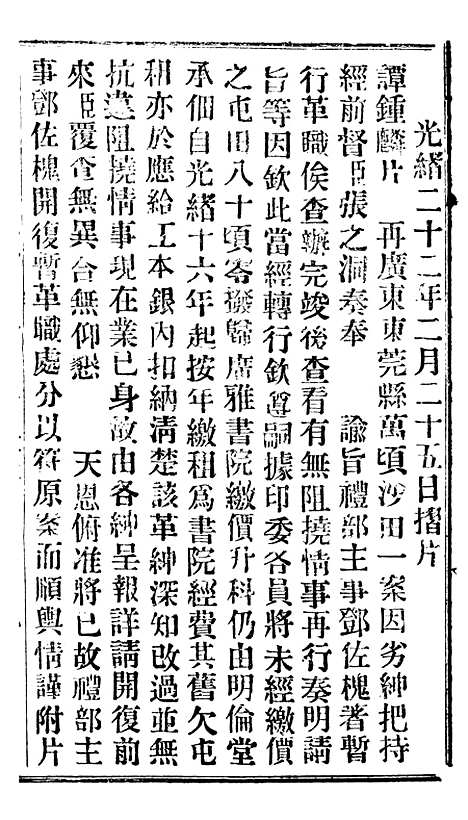 光緒二十二年二月二十五日摺片
譚鍾麟片　再廣東東莞縣萬頃沙田一案因劣紳把持
經前督臣張之洞奏奉　諭旨禮部主事鄧佐槐著暫
行革職俟查辦完竣後查看有無阻撓情事再行奏明請
旨等因欽此當經轉行欽遵嗣據印委各員將未經繳價
之屯田八十頃零撥歸廣雅書院繳價升科仍由明倫堂
承佃自光緒十六年起按年繳租為書院經費其舊欠屯
租亦於應給工本銀內扣納清楚該革紳深知改過並無
抗違阻撓情事現在業已身故由各紳呈報詳請開復前
來臣覆查無異合無仰懇　天恩俯准將已故禮部主
事鄧佐槐開復暫革職處分以符原案而順輿情謹附片